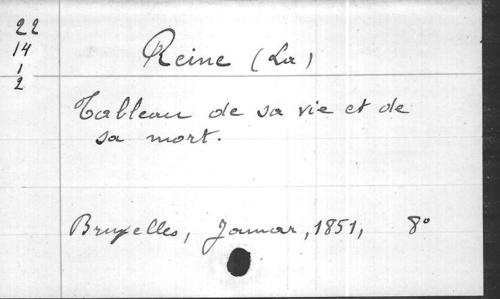 22
14
1
2
Reine (La)
Tableau de sa vie et de
sa mort.
Bruxelles, Jamar, 1851, 8°